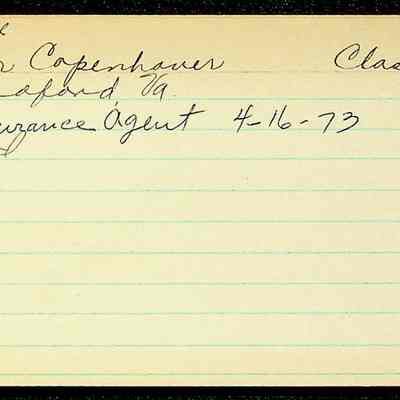 r Copenhaver Clas
dford Va
urance Agent 4-16-73